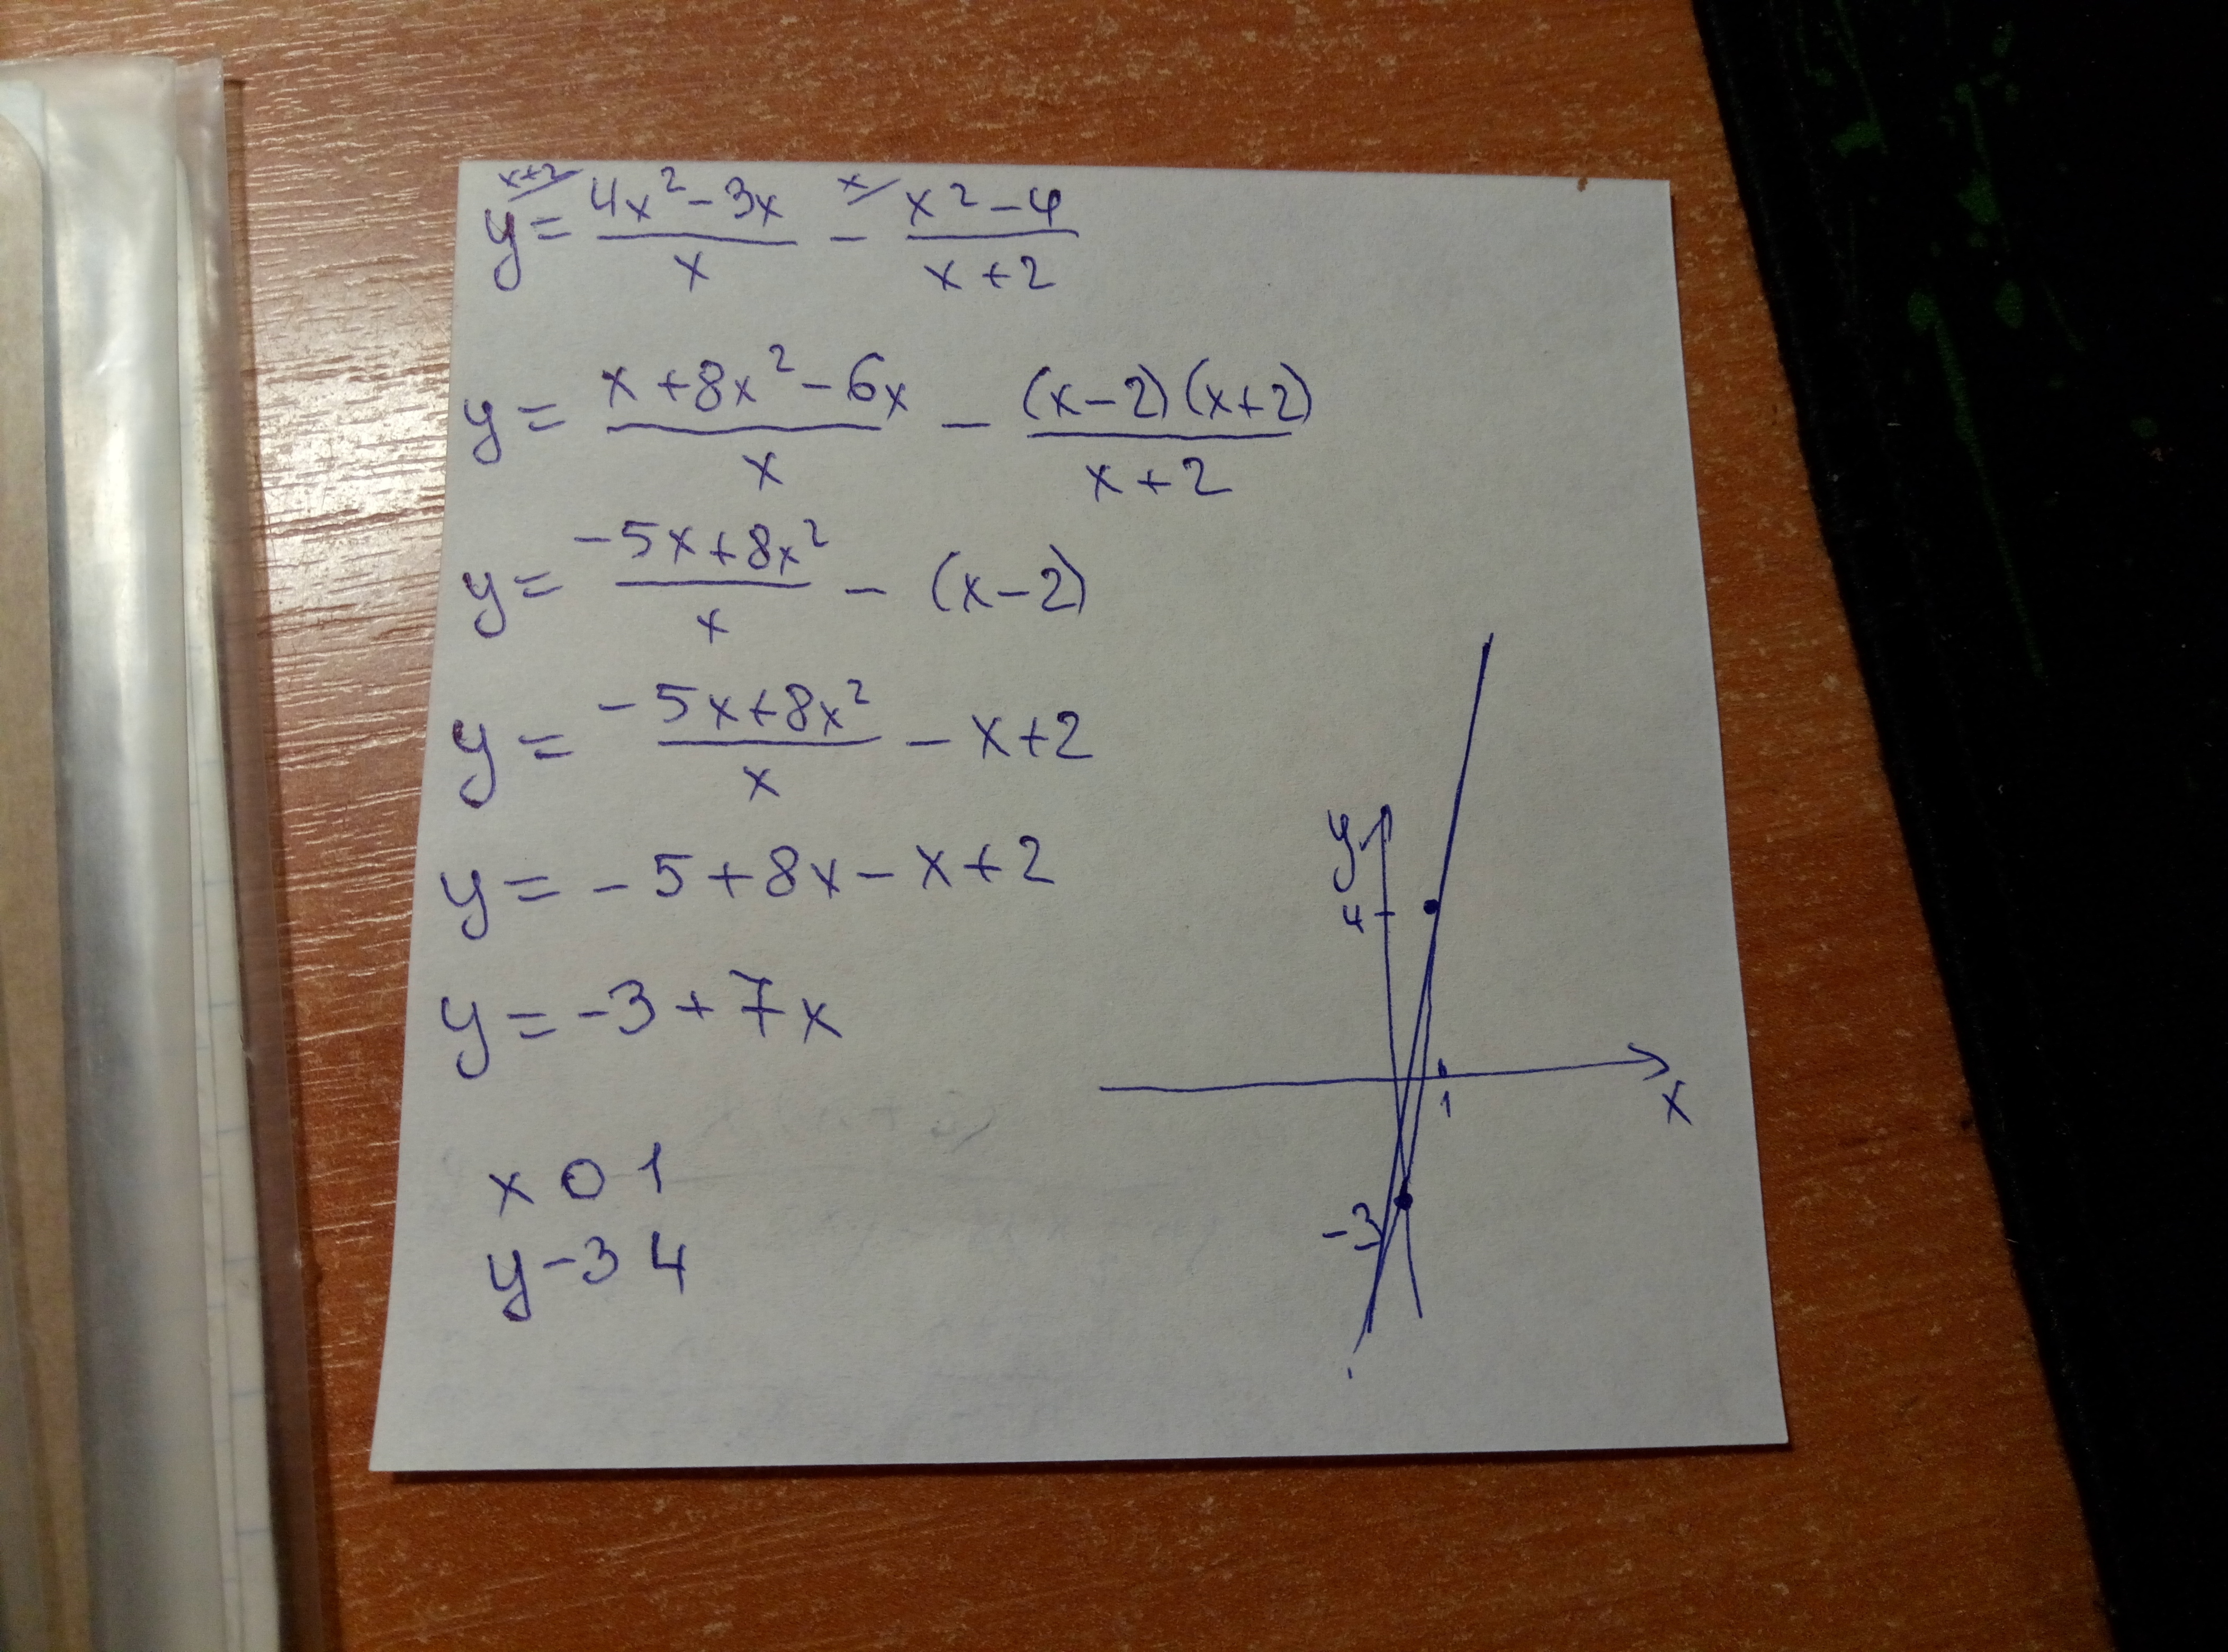 x+2 x
y = (4x² - 3x)/x - (x² - 4)/(x + 2)
y = (x + 8x² - 6x)/x - ((x - 2)(x + 2))/(x + 2)
y = (-5x + 8x²)/x - (x - 2)
y = (-5x + 8x²)/x - x + 2
y = -5 + 8x - x + 2
y = -3 + 7x
x 0 1
y -3 4
y
4
1
x
-3